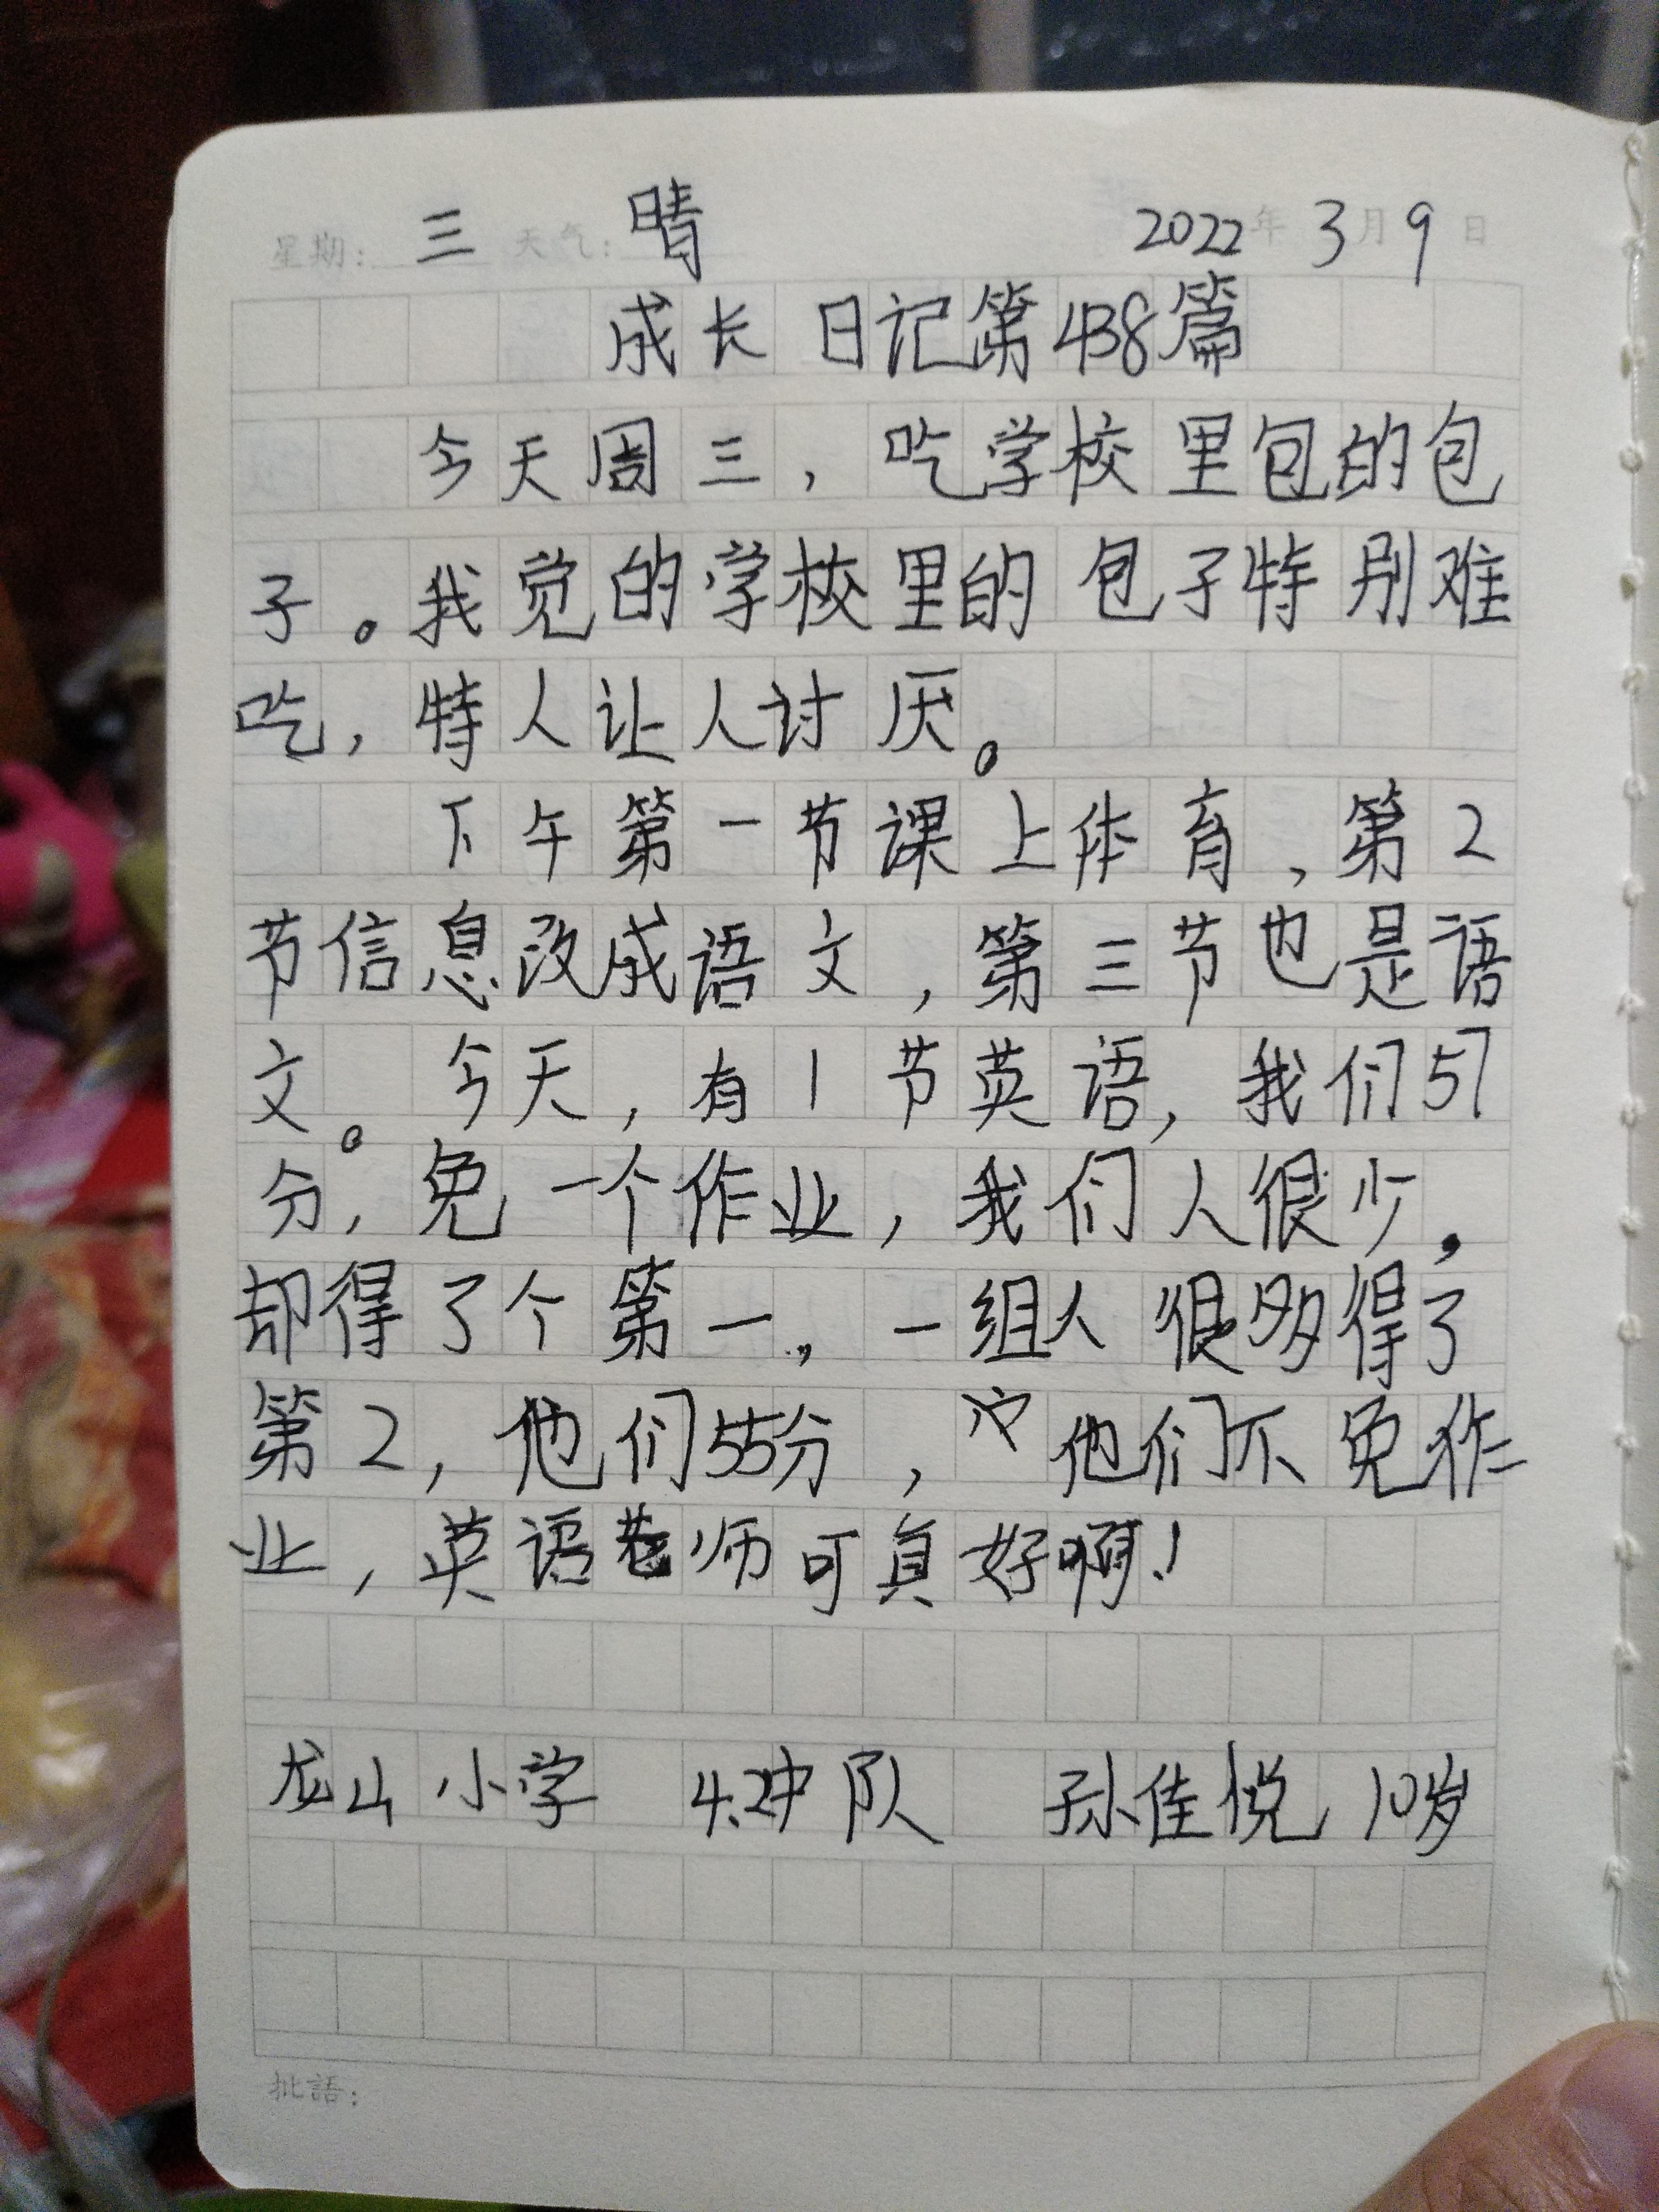 星期: 三 天气: 晴 2022年 3月 9日
成长日记第438篇
今天周三，吃学校里包的包
子。我觉的学校里的包子特别难
吃，特人让人讨厌。
下午第一节课上体育，第2
节信息改成语文，第三节也是语
文。今天，有1节英语，我们57
分，免一个作业，我们人很少，
却得了个第一，一组人很多得了
第2，他们55分，他们不免作
业，英语老师可真好啊！
龙山小学 4.2中队 孙佳悦 10岁
批語：